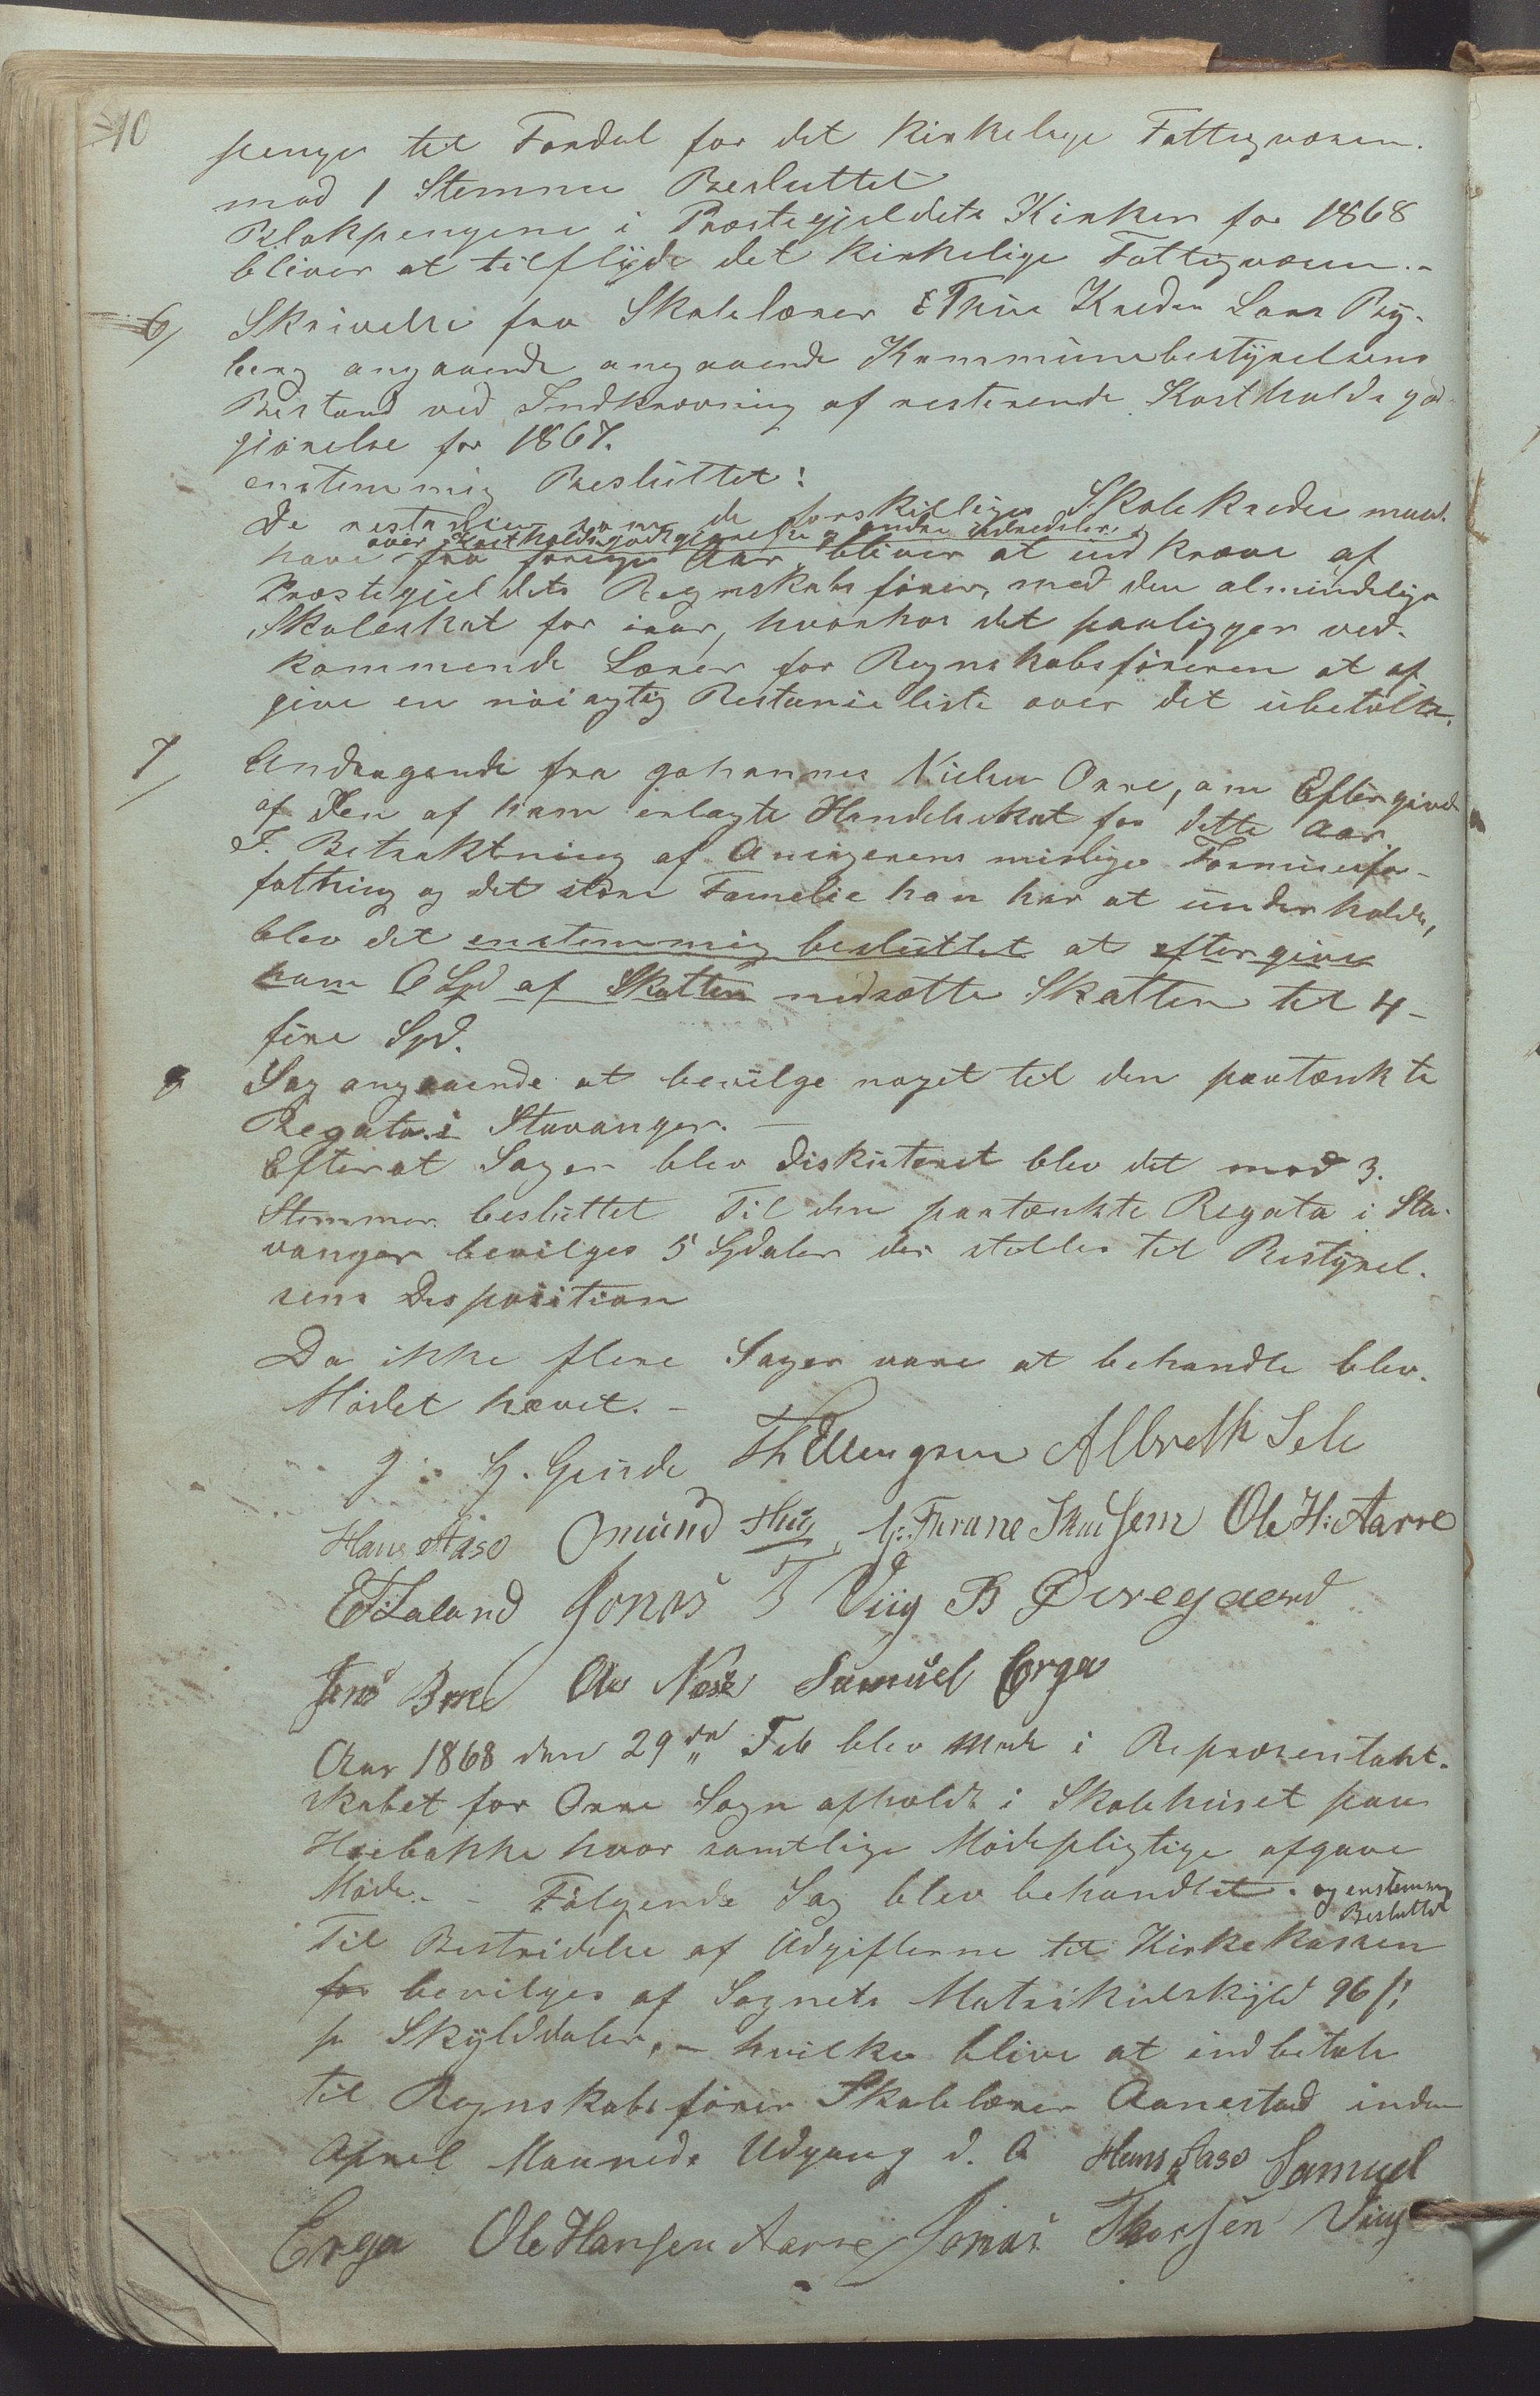 10
penge til Fordel for det kirkelige Fattigvæsen.
mod 1 Stemme Besluttet
Blokpengene i Præstegjeldets Kirker for 1868
bliver at tilflyde det kirkelige Fattigvæsen. -
6/ Skrivelse fra Skolelærer Thue Kreder Lars Ry-
berg angaaende angaaende Kommunebestyrelsens
Bistand ved Indkrævning af resterende Kostholdsgod-
gjørelse for 1867.
enstemmig Besluttet:
De restancer som de forskjellige Skolekredse maa
over Kostholdsgodtgjørelse og andre Udredsler
have fra forrige Aar, bliver at indkræve af
Præstegjeldets Regnskabsfører, med den almindelige
Skoleskat for iaar, hvorhos det paaligger ved-
kommende Lærer for Regnskabsføreren at af-
give en nøiagtig Restanceliste over det ubetalte.
7/ Andragende fra Johannes Nielsen Orre, om Eftergivelse
af den af ham erlagte Handelsskat for dette Aar.
I Betraktning af Ansøgerens mislige Formuesfor-
fatning og det store Familie han har at underholde,
blev det enstemmig besluttet at eftergive
ham 6 Spd af Skatten nedsætte Skatten til 4 -
fire Spd.
8 Sag angaaende at bevilge noget til den paatænkte
Regata i Stavanger. -
Efterat Sagen blev diskuteret blev det mod 3.
Stemmer besluttet Til den paatænkte Regata i Sta-
vanger bevilges 5 Spdaler der stilles til Bestyrel-
sens Disposition
Da ikke flere Sager vare at behandle blev
Mødet hævet. -
J. H. Gjude Th Ellingsen Albreth Sele
Hans Aase Omund Hug, G. Thrane Skaisem Ole H: Aarre
E T Laland Jonas T Viig B Øvregaard
Jens Bore Ole Næse Samuel Erga
Aar 1868 den 29de Feb blev Møde i Repræsentant-
skabet for Orre Sogn afholdt i Skolehuset paa
Høibakke hvor samtlige Mødepligtige afgave
Møde. - Følgende Sag blev behandlet. og enstemmig
Besluttet
Til Bestridelse af Udgifterne til Kirkekassen
for bevilges af Sognets Matrikulskyld 96 ß
pr Skylddaler, - hvilke blive at indbetale
til Regnskabsfører Skolelærer Aanestad inden
April Maaneds Udgang d. A Hans Aase Samuel
Erga Ole Hansen Aarre Jonas Thorsen Viig